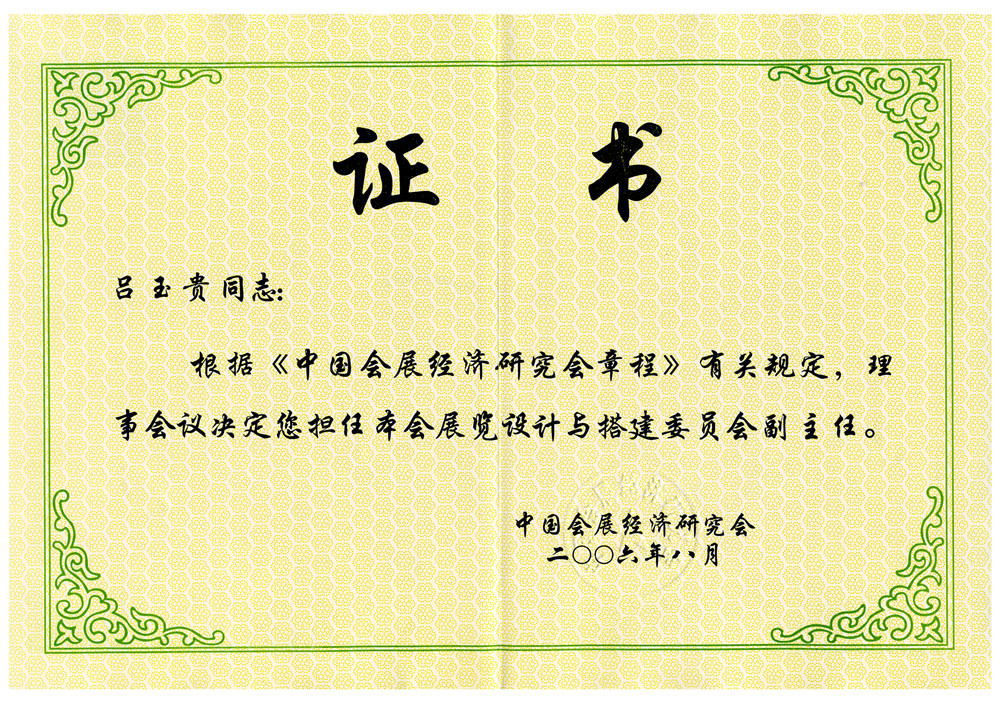 证书
吕玉贵同志：
根据《中国会展经济研究会章程》有关规定，理
事会议决定您担任本会展览设计与搭建委员会副主任。
中国会展经济研究会
二〇〇六年八月